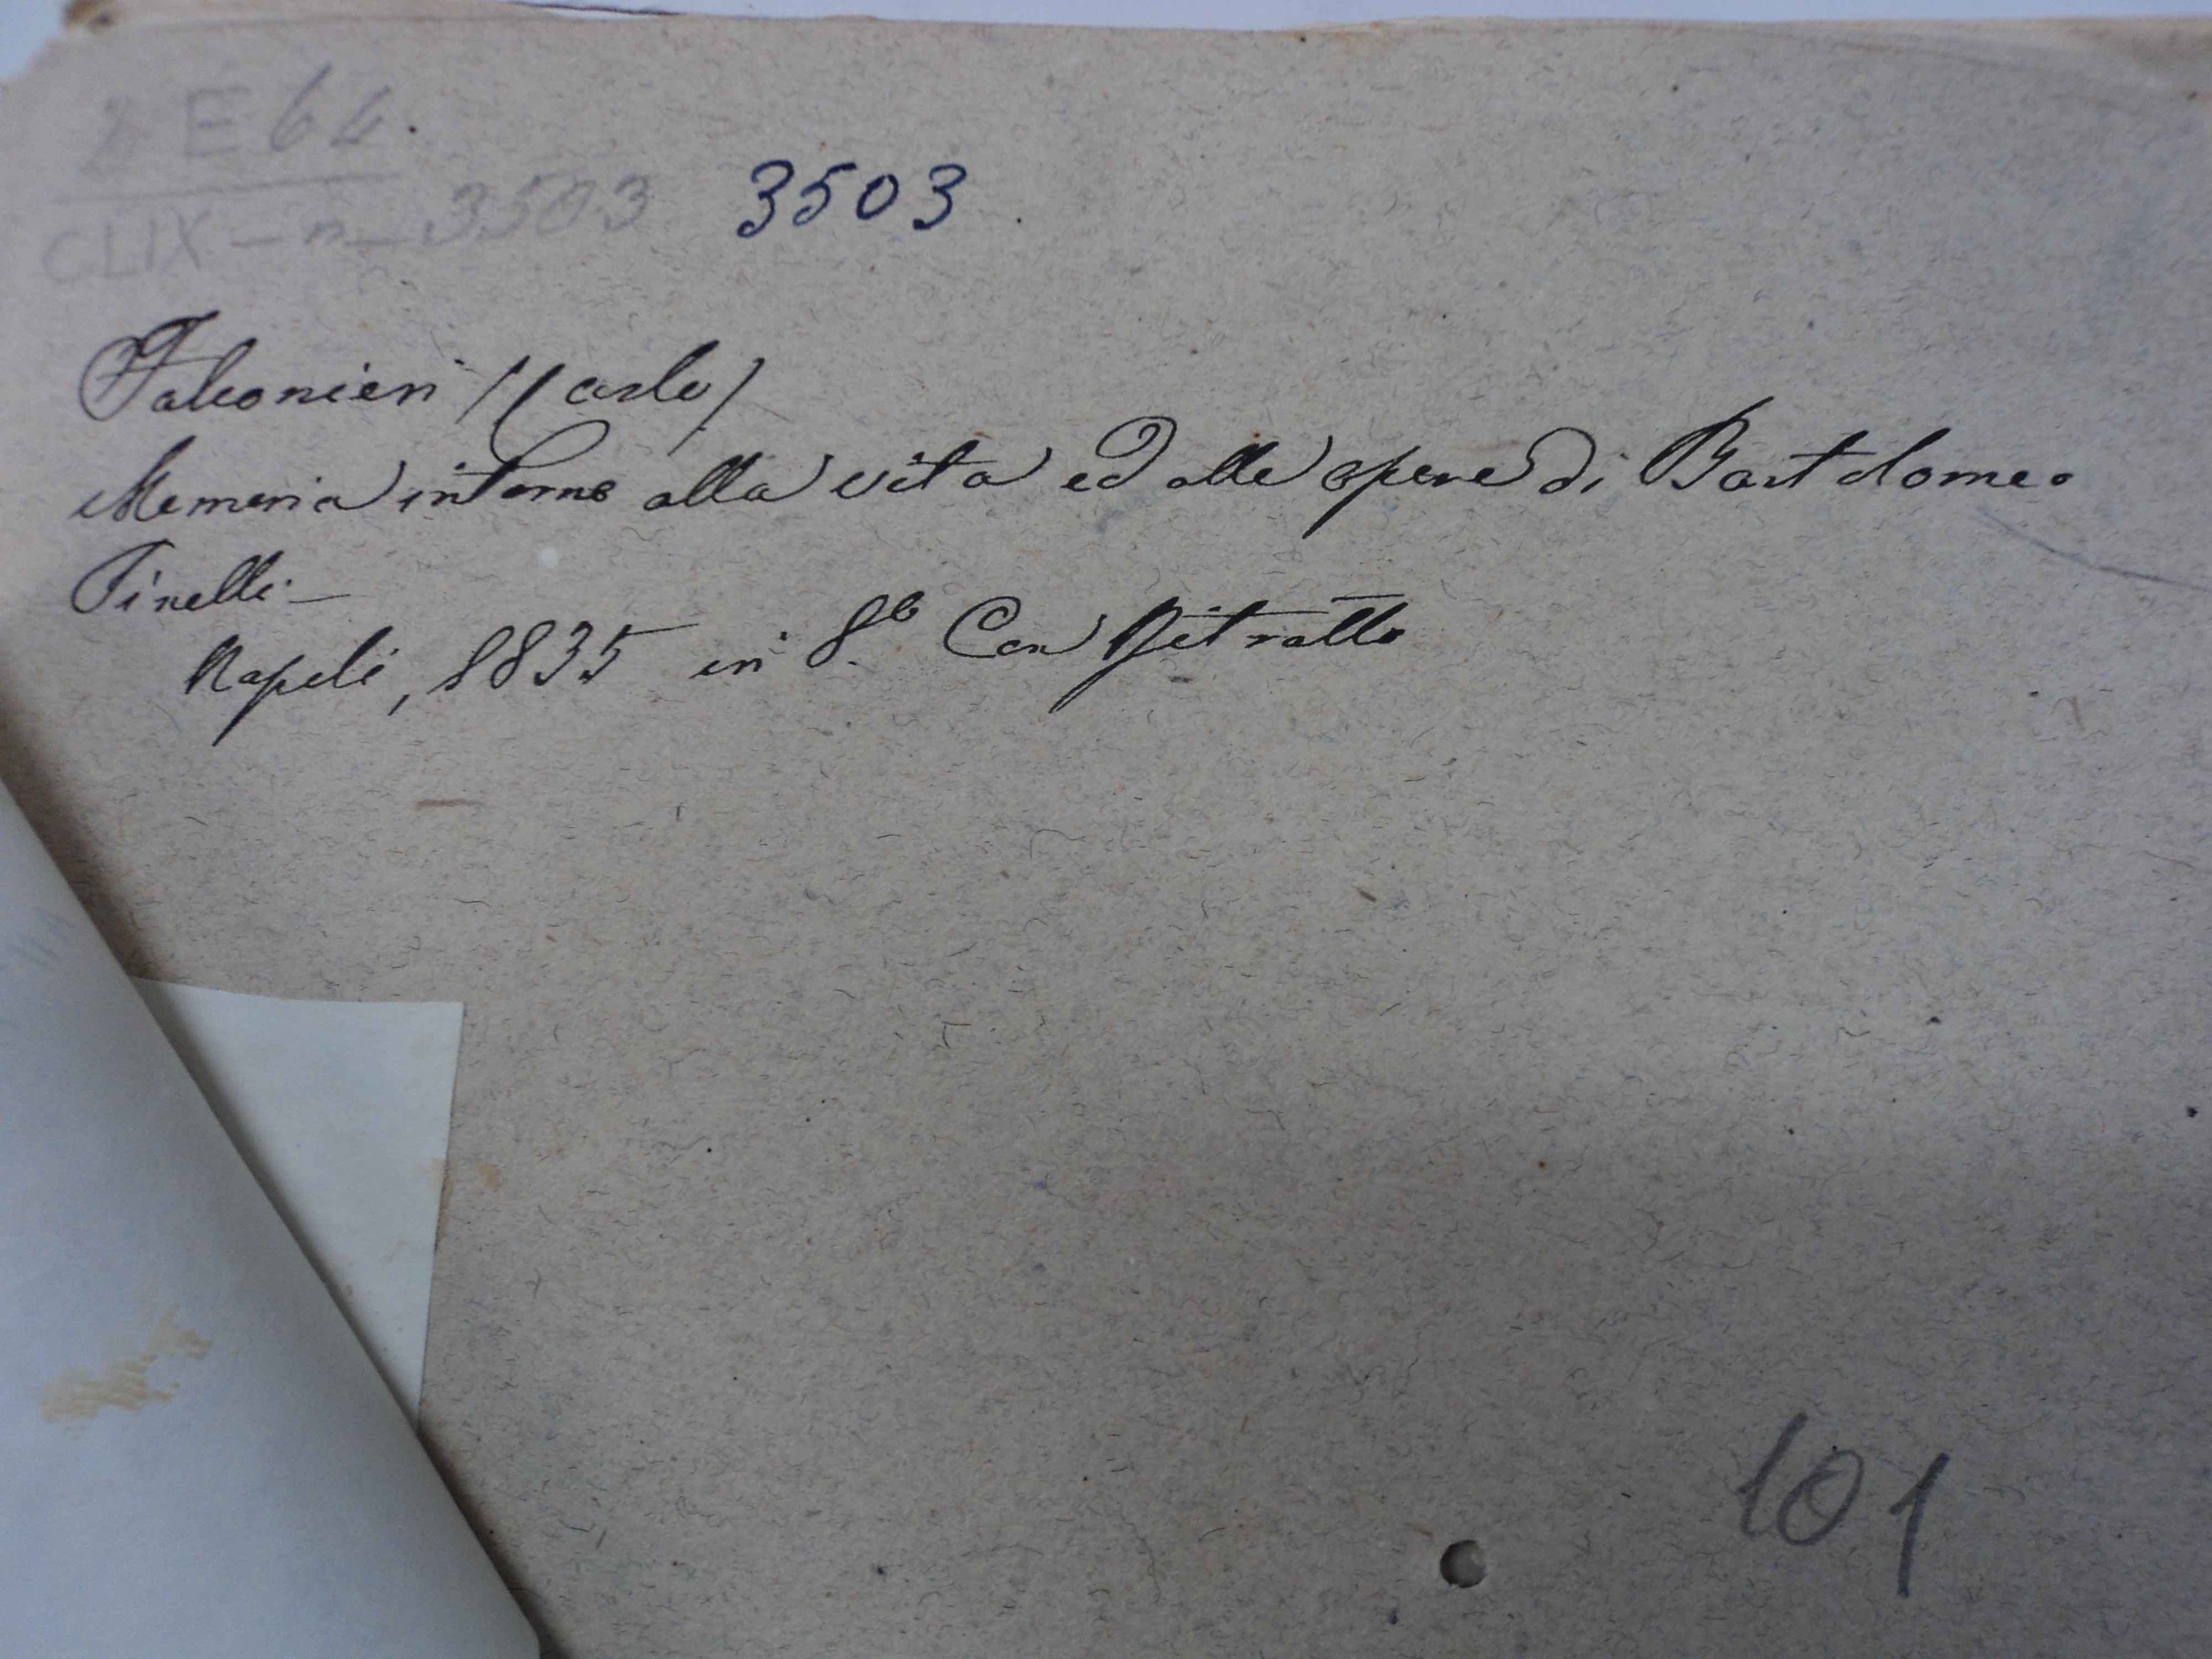 E 64.
CLIX - n - 3503 3503
Falconieri (Carlo)
Memoria intorno alla vita ed alle opere di Bartolomeo
Pinelli -
Napoli, 1835 in 8.o Con Ritratto
101